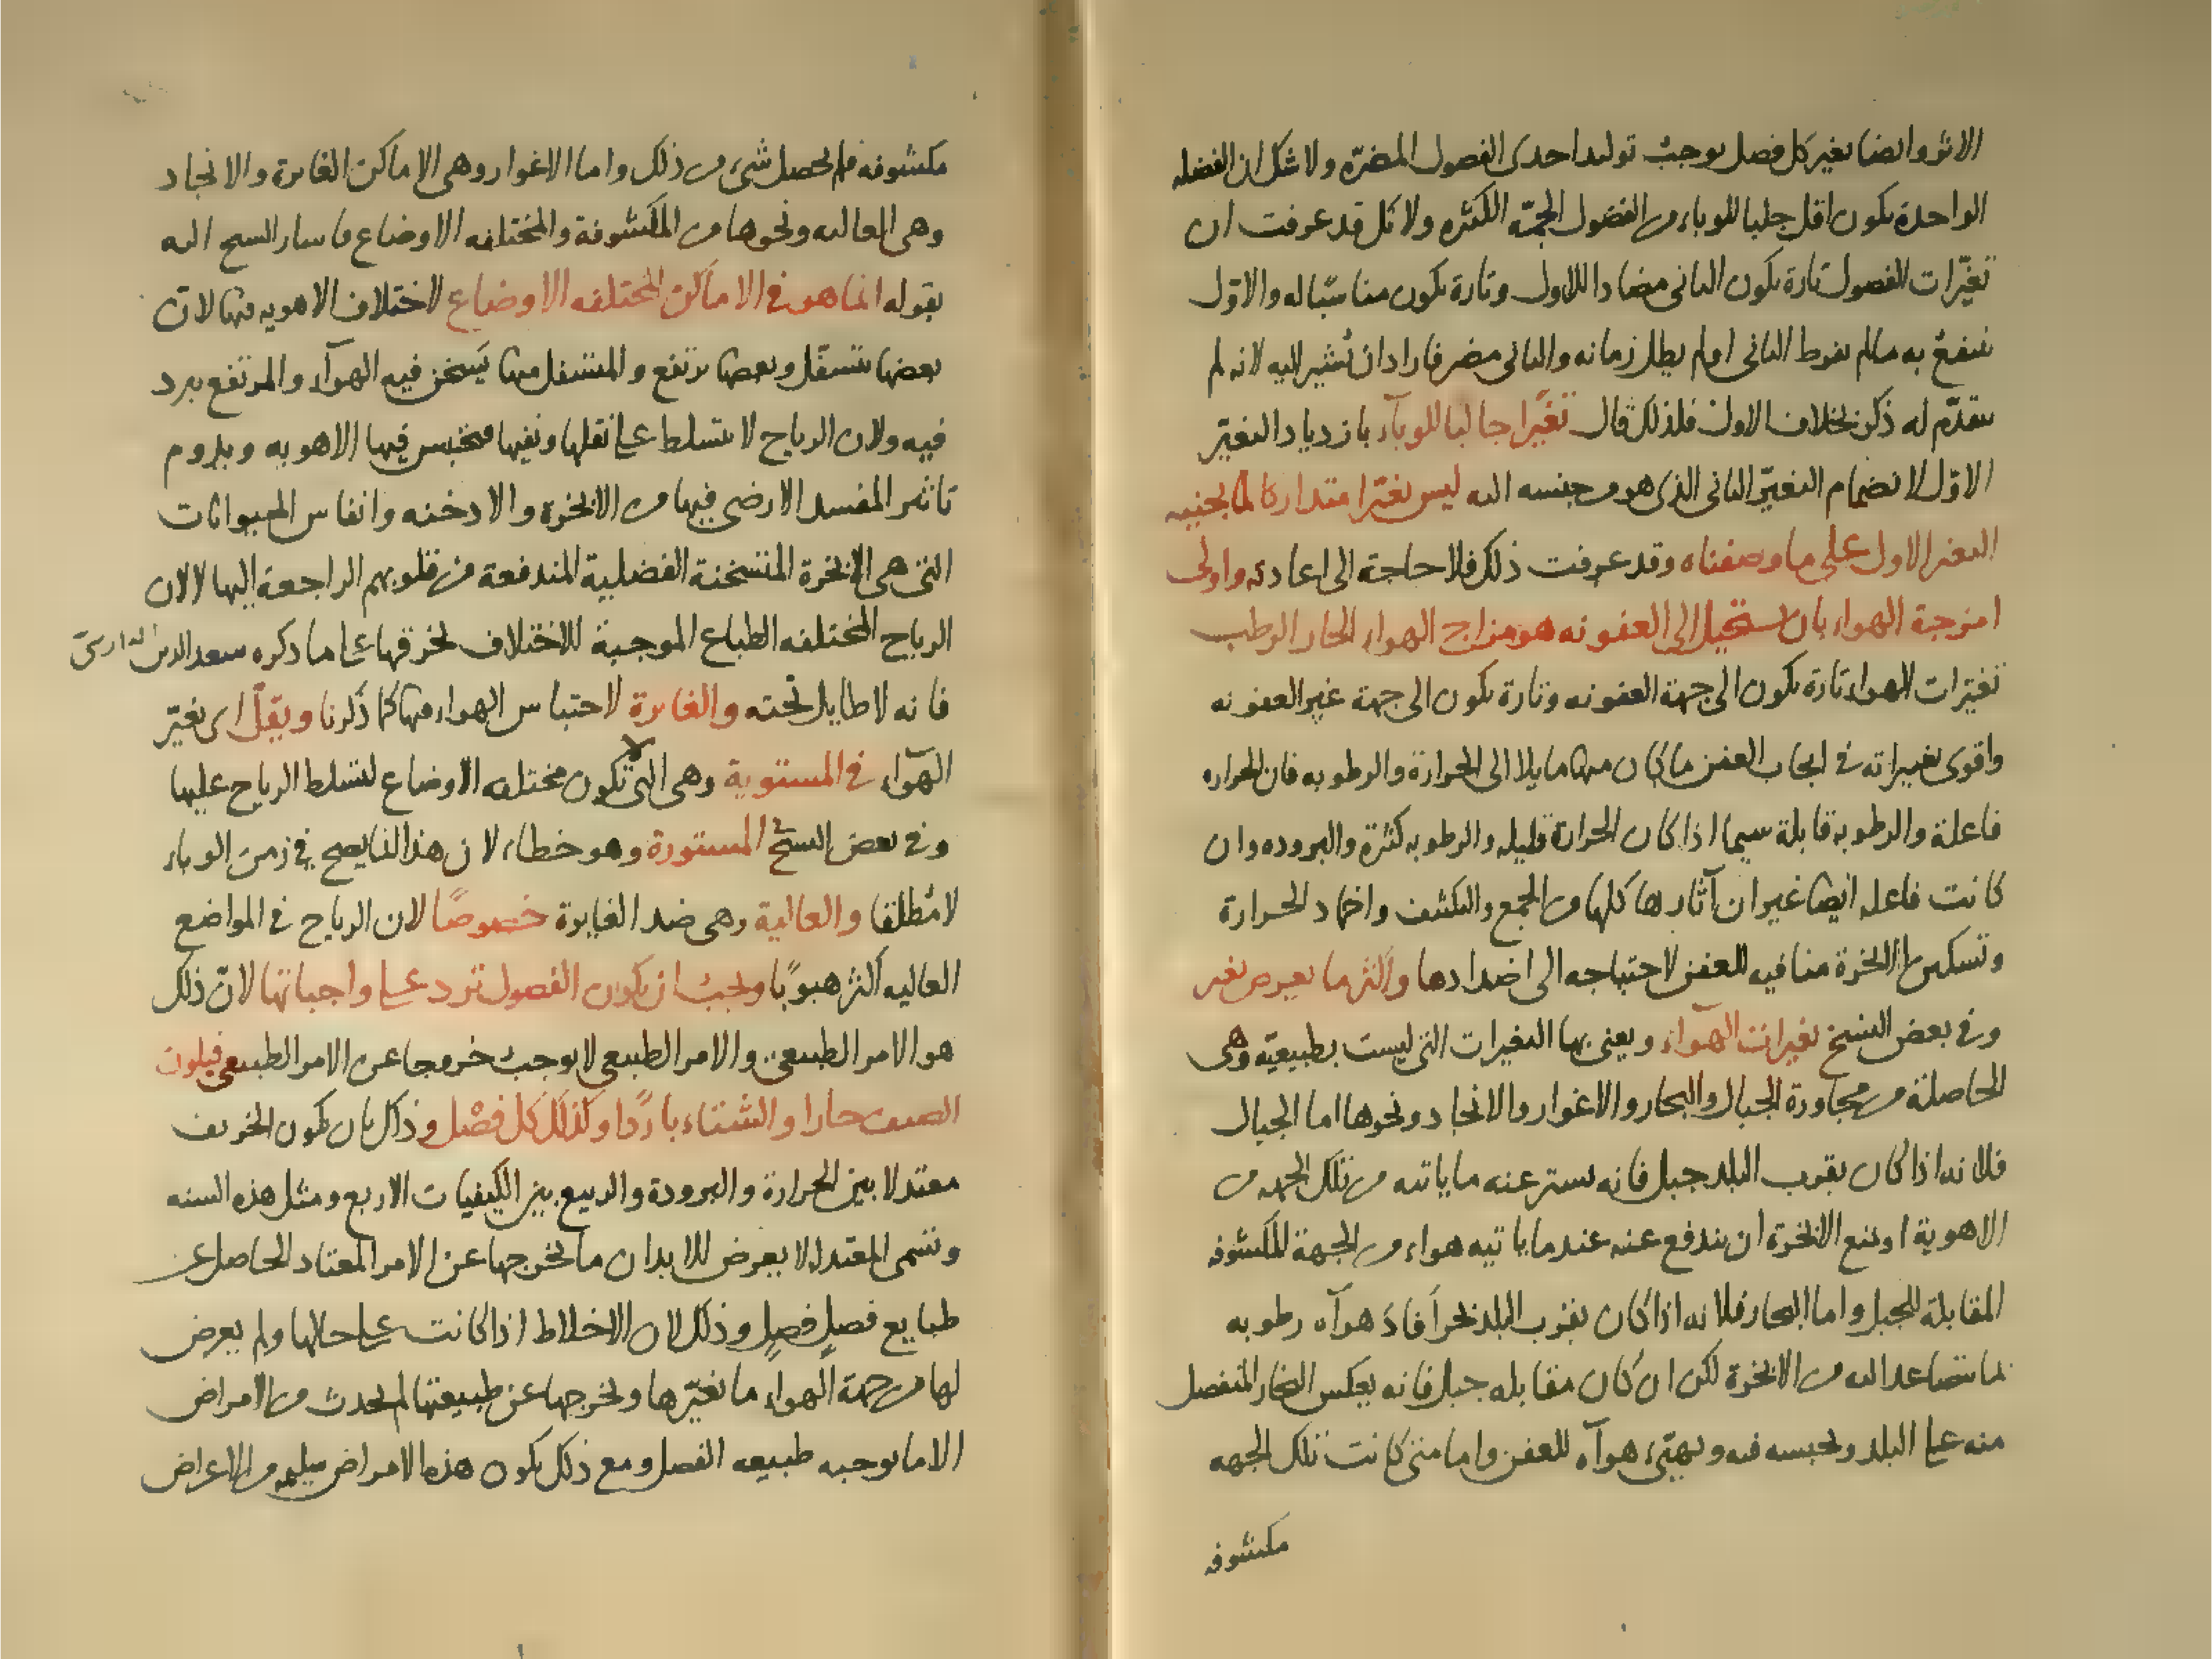 الاثر وايضا تغير كل فصل يوجب توليد احدى الفصول المضرّه ولا شك ان الفضله
الواحدة يكون اقل جلبا للوباء من الفضول الجمّه الكثيره ولا كل قد عرفت ان
تغيّرات الفصول تارة يكون الثانى مضادا للاول وتارة يكون مناسبا له والاوّل
ينتفع به مالم يفرط الثانى او لم يطل زمانه والثانى مضر فاراد ان نشير اليه لانه لم
يتقدّم له ذكر بخلاف الاول فلذلك قال تغيّرا جالبا للوبآء بازدياد التغيّر
الاوّل لانضمام التغيّر الثانى الذى هو من جنسه اليه ليس تغيّرا متداركا لما يجنيه
التغير الاول على ما وصفناه وقد عرفت ذلك فلا حاجة الى اعادته واولى
امزجة الهواء بان يستحيل الى العفونه هو مزاج الهواء الحار الرطب
تغيرات الهواء تارة يكون الى جهة العفونه وتارة يكون الى جهة غير العفونه
واقوى تغييراته فى ايجاب العفن ما كان منها مايلا الى الحرارة والرطوبه فان الحراره
فاعلة والرطوبة قابلة سيما اذا كان الحرارة قليله والرطوبه كثيرة والبروده وان
كانت فاعله ايضا غير ان آثارها كلها من الجمع والتكثيف واخماد الحرارة
وتسكين الابخرة منافيه للعفن لاحتياجه الى اضدادها واكثر ما يعرض تغير
وفى بعض النسخ تغيرات الهوآء ويعنى بها التغيرات التى ليست بطبيعيّه وهى
الحاصلة من مجاورة الجبال والبحار والاغوار والانجاد ونحوها اما الجبال
فلانه اذا كان بقرب البلد جبل فانه يستر عنه ما ياتيه من تلك الجهه من
الاهوية او يمنع الابخرة ان يندفع عنه عند ما ياتيه هواء من الجهة المكشوفه
المقابلة للجبل واما البحار فلانه اذا كان بقرب البلد بحرا فاد هوآه رطوبه
لما يتصاعد اليه من الابخرة لكن ان كان مقابله جبل فانه يعكس البخار المنفصل
منه على البلد ويحبسه فيه ويهيّئ هوآه للعفن واما متى كانت تلك الجهه
مكشوفه
مكشوفه فلم يحصل شئ من ذلك واما الاغوار وهى الاماكن الغايرة والانجاد
وهى العاليه ونحوها من المكشوفة والمختلفه الاوضاع فاشار الشيخ اليه
بقوله انما هو فى الاماكن المختلفه الاوضاع لاختلاف الاهويه فيها لان
بعضها يتسفّل وبعضها يرتفع والمتسفل منها يَسخن فيه الهوآء والمرتفع يبرد
فيه ولان الرياح لا يتسلط على نقلها ونفيها فتحتبس فيها الاهويه ويلزوم
تاثير المفسد الارضى فيها من الابخرة والادخنه وانفاس الحيوانات
التى هى الابخرة المتسخنة الفضلية المندفعة من قلوبهم الراجعة اليها لا لان
الرياح المختلفه الطباع الموجبة للاختلاف يخرقها على ما ذكره سعد الدين
فانه لا طايل تحته والغايرة لاحتباس الهواء فيها كما ذكرنا ويقلّ اى تغيّر
الهوآء فى المستوية وهى التى تكون مختلفه الاوضاع لتسلط الرياح عليها
وفى بعض النسخ المستورة وهو خطاء لان هذا انما يصح فى زمن الوباء
لا مطلقا والعالية وهى ضد الغايرة خصوصًا لان الرياح فى المواضع
العاليه اكثر هبوبًا ويجب ان يكون الفصول ترد على واجباتها لانّ ذلك
هو الامر الطبيعى والامر الطبيعى لا يوجب خروجا عن الامر الطبيعى فيكون
الصيف حارا والشتاء باردًا وكذلك كل فصْل وذلك بان يكون الخريف
معتدلا بين الحرارة والبرودة والربيع بين الكيفيات الاربع ومثل هذه السنه
وتسمى المعتدله لا يعرض للابدان ما يخرجها عن الامر المعتاد الحاصل عن
طبايع فصلٍ فصلٍ وذلك لان الاخلاط اذا كانت على حالها ولم يعرض
لها من جهة الهواء ما يغيّرها ويخرجها عن طبيعتها لم يحدث من الامراض
الا ما يوجبه طبيعه الفصل ومع ذلك يكون هذه الامراض سليمه من الاعراض